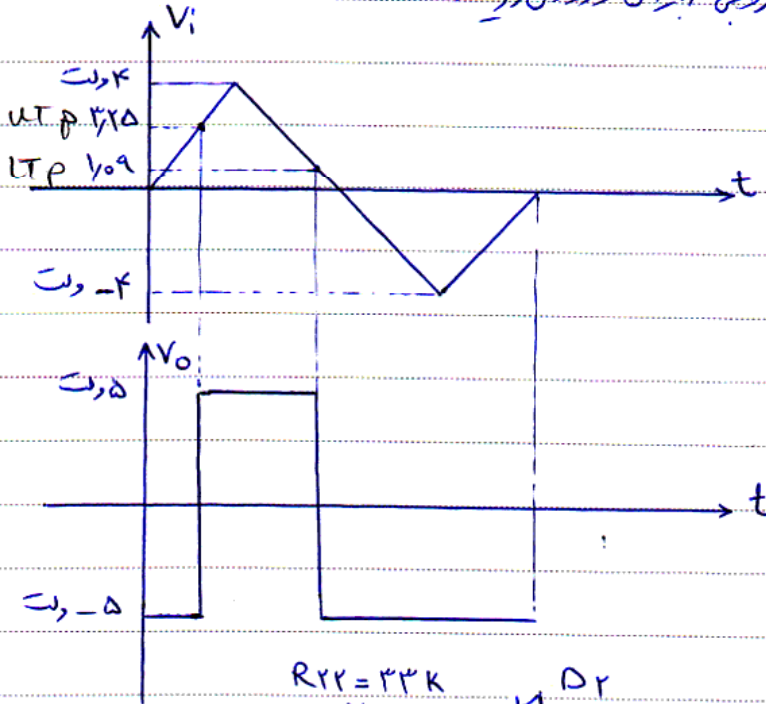 Vi
۴ ولت
UTP ۳,۲۵
LTP ۱,۰۹
t
-۴ ولت
Vo
۵ ولت
t
-۵ ولت
R۲۲ = ۳۳K
D۲